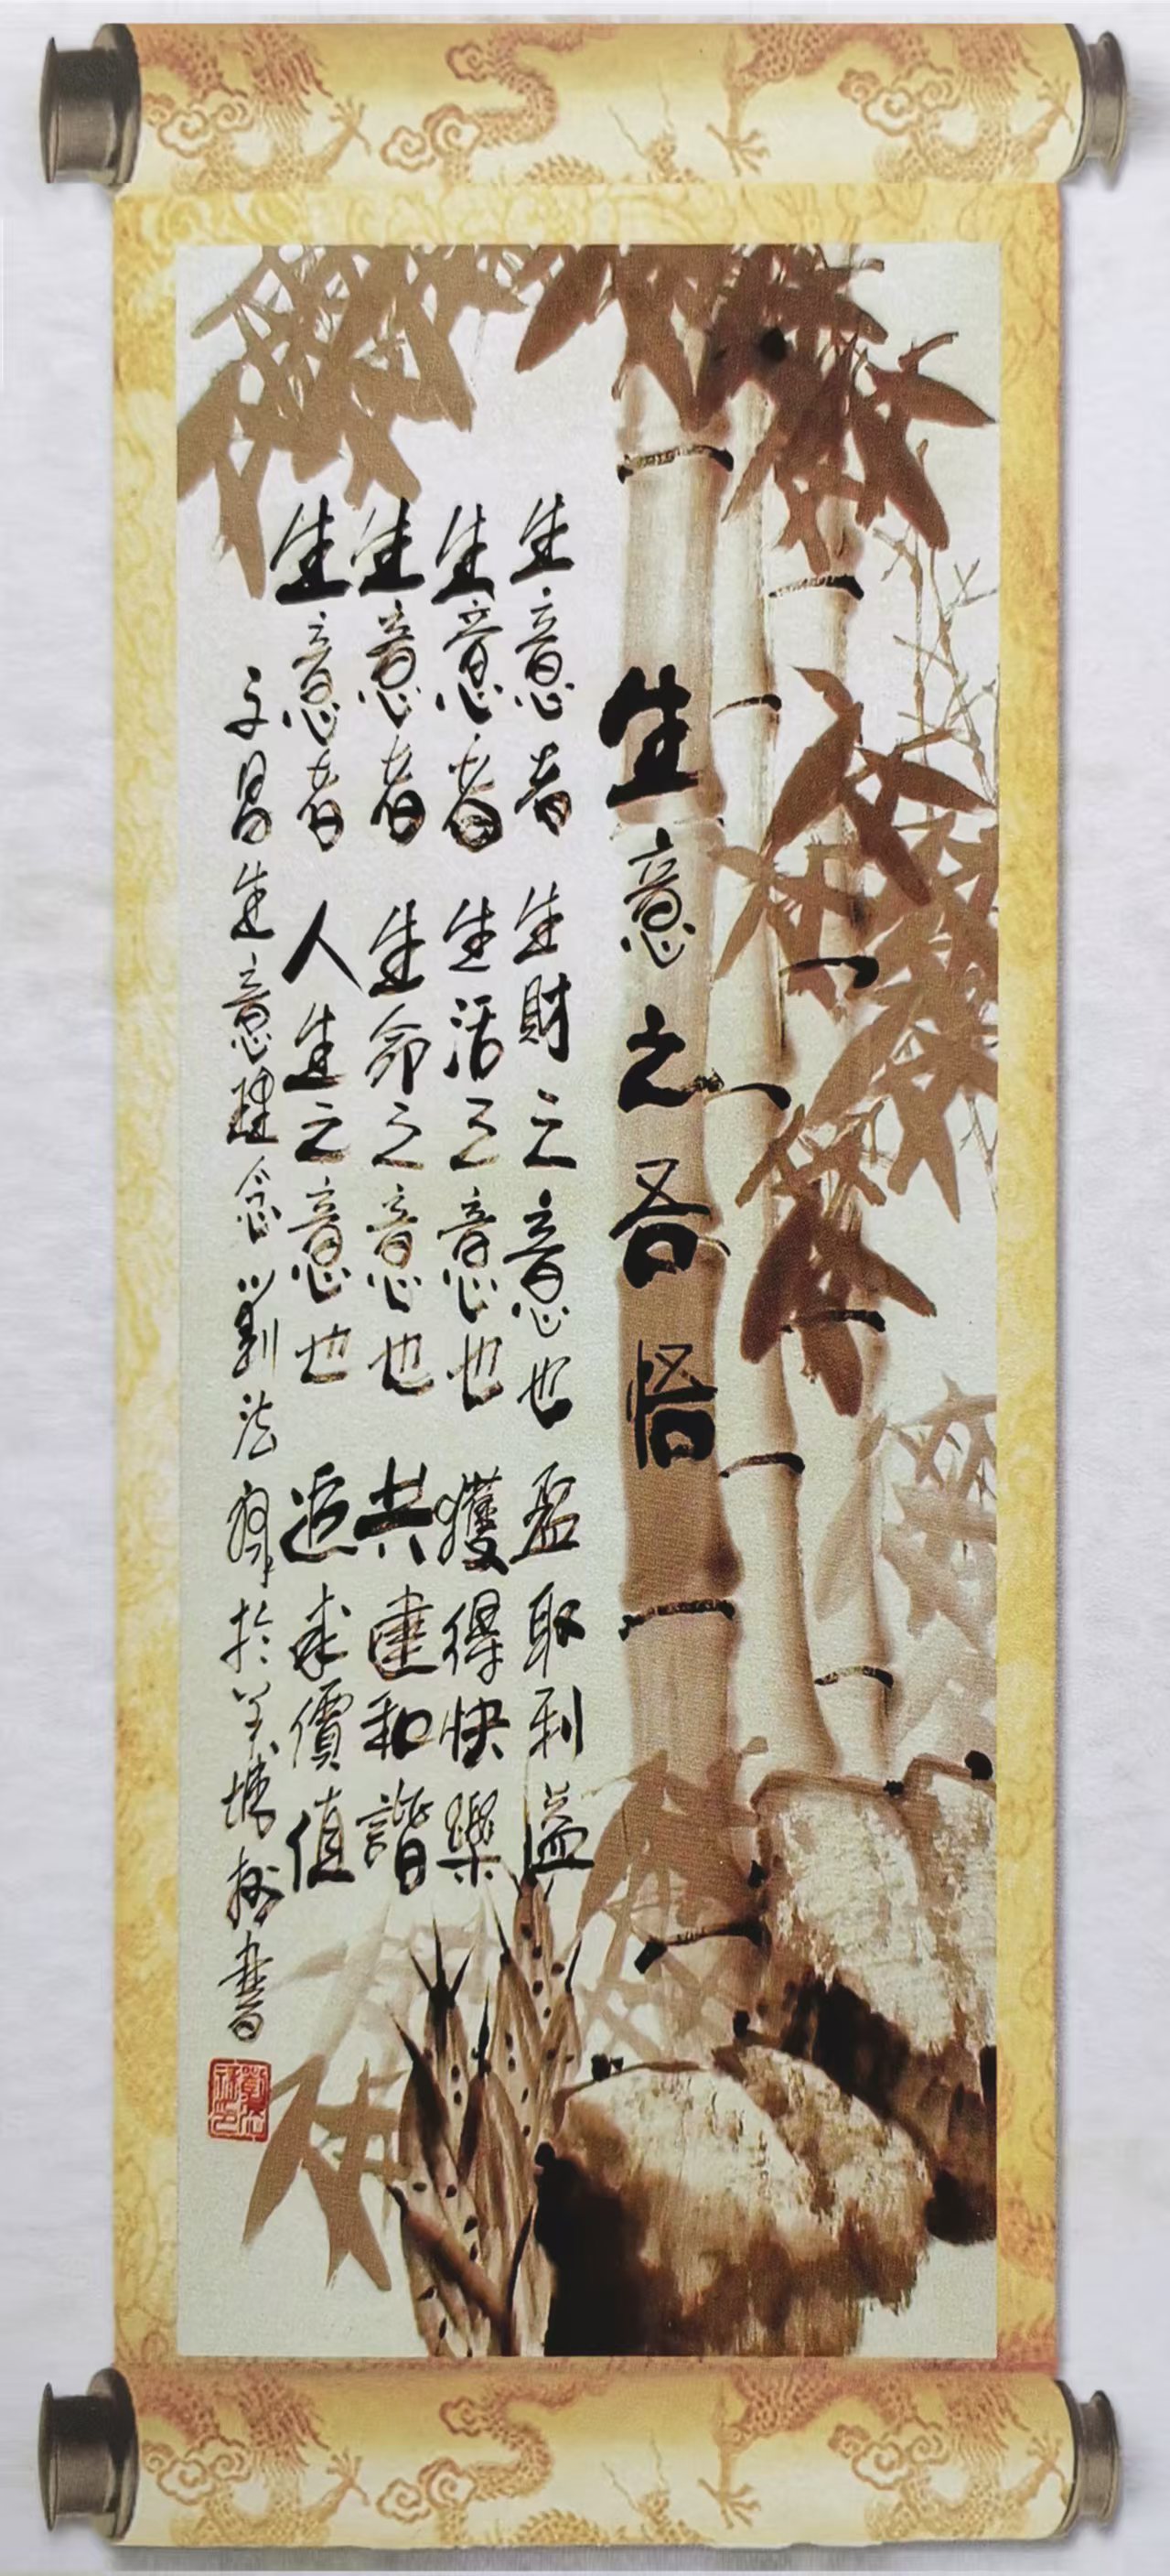 生意之吾悟
生意者 生財之意也 盈取利益
生意者 生活之意也 獲得快樂
生意者 生命之意也 共建和諧
生意者 人生之意也 追求價值
文昌生意理念 劉法 於羊城 書